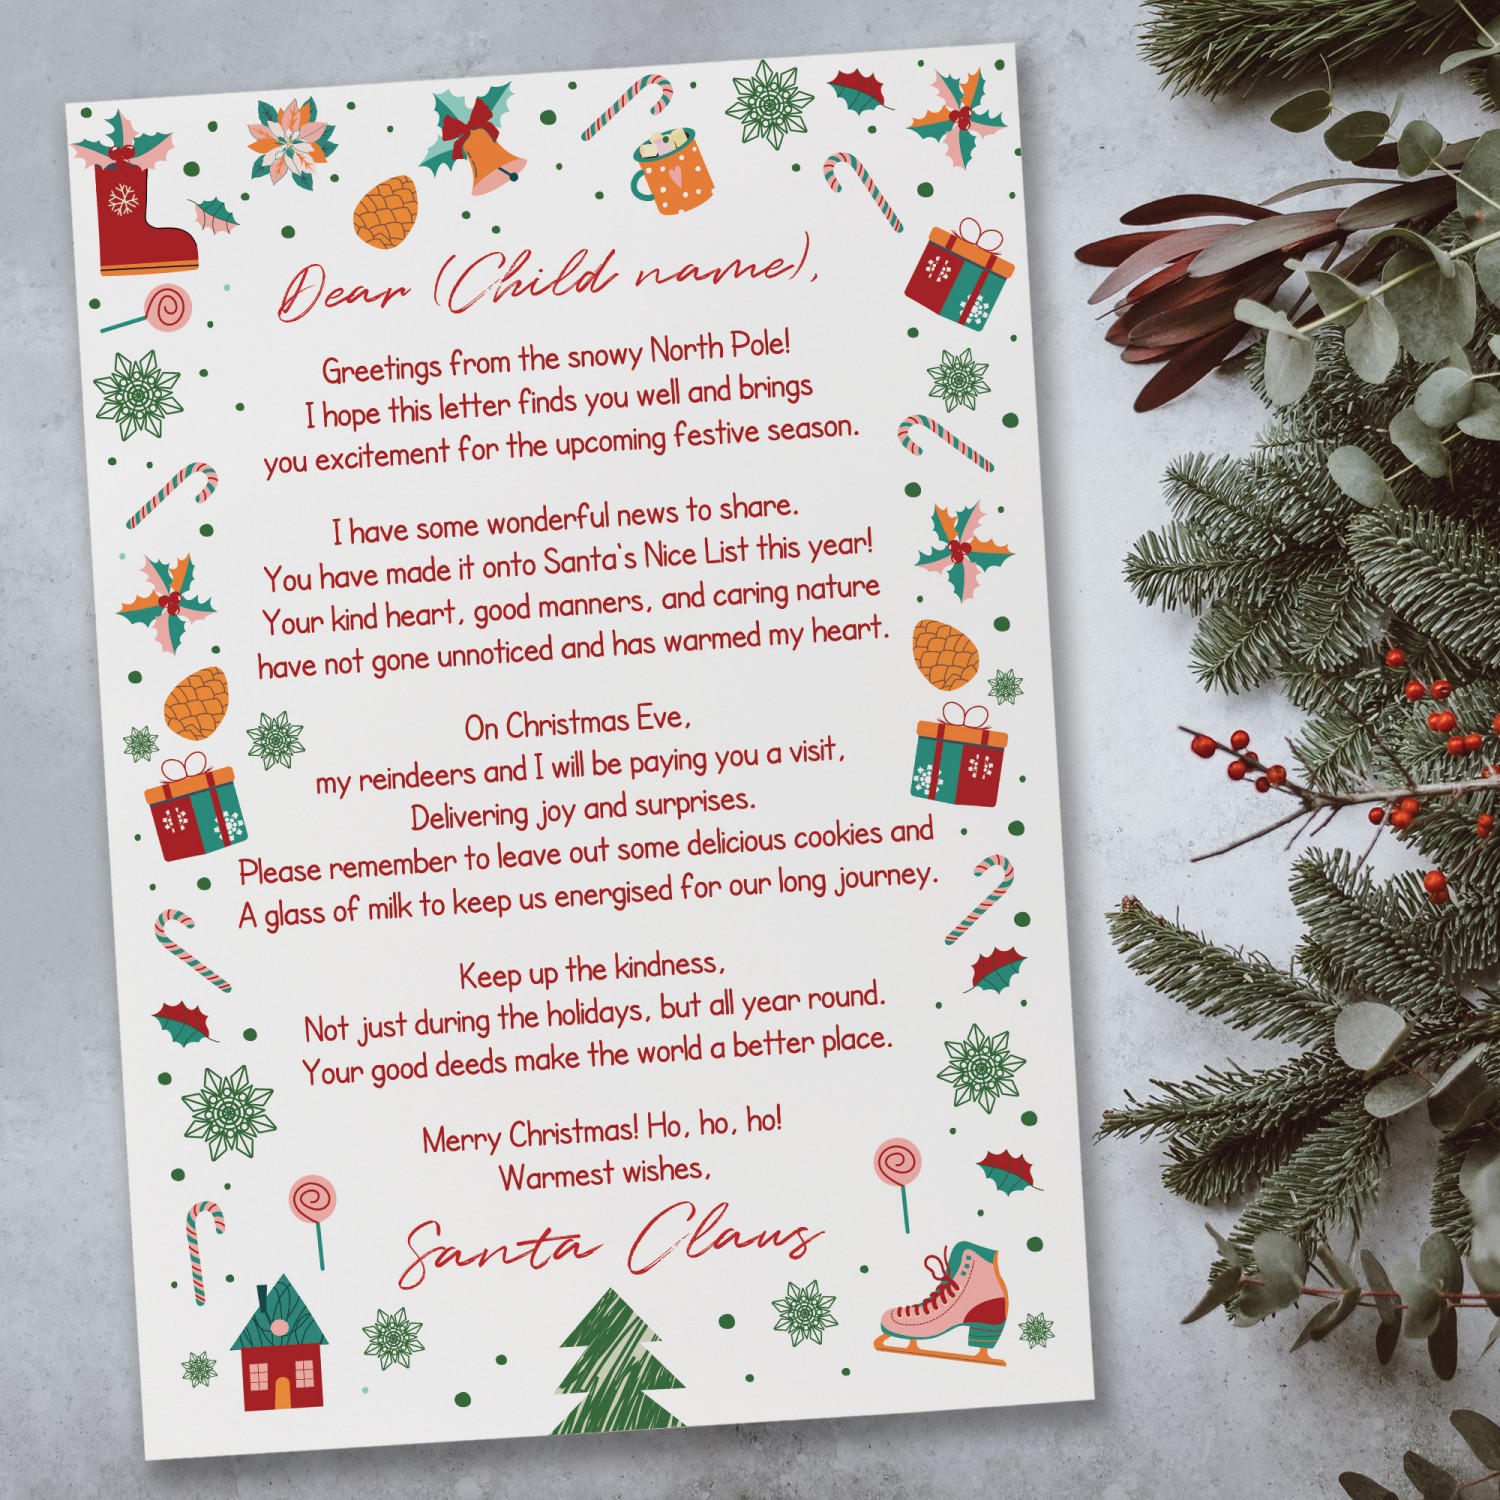 Dear (Child name),
Greetings from the snowy North Pole!
I hope this letter finds you well and brings
you excitement for the upcoming festive season.
I have some wonderful news to share.
You have made it onto Santa's Nice List this year!
Your kind heart, good manners, and caring nature
have not gone unnoticed and has warmed my heart.
On Christmas Eve,
my reindeers and I will be paying you a visit,
Delivering joy and surprises.
Please remember to leave out some delicious cookies and
A glass of milk to keep us energised for our long journey.
Keep up the kindness,
Not just during the holidays, but all year round.
Your good deeds make the world a better place.
Merry Christmas! Ho, ho, ho!
Warmest wishes,
Santa Claus